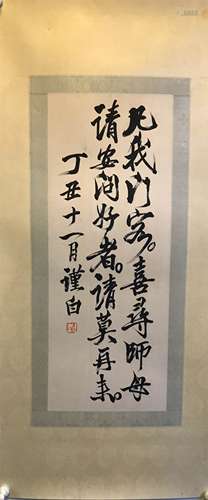 凡我门客。喜寻師母
请安问好者。请莫再来。
丁丑十一月谨白